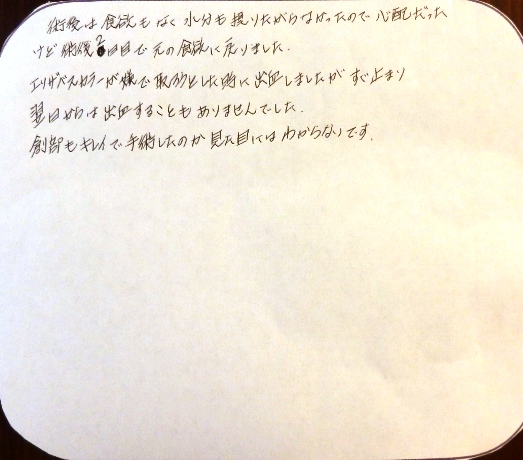 術後は食欲もなく水分も摂りたがらなかったので心配だった
けど術後2日目で元の食欲に戻りました.
エリザベスカラーが嫌で取ろうとした時に出血しましたがすぐ止まり
翌日からは出血することもありませんでした.
創部もキレイで手術したのか見た目にはわからないです.